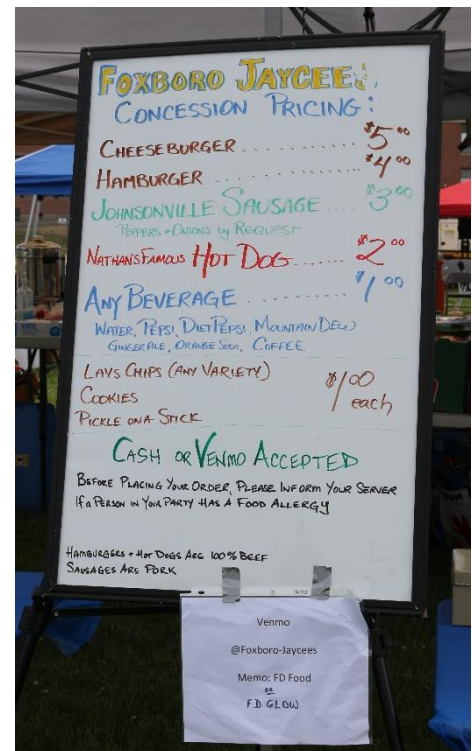 FOXBORO JAYCEES
CONCESSION PRICING:
CHEESEBURGER .......... $5.00
HAMBURGER ................ $4.00
JOHNSONVILLE SAUSAGE .... $3.00
PEPPERS + ONIONS by REQUEST
NATHANS FAMOUS HOT DOG ....... $2.00
ANY BEVERAGE .......... $1.00
WATER, PEPSI, DIET PEPSI, MOUNTAIN DEW
GINGERALE, ORANGE SODA, COFFEE
LAYS CHIPS (ANY VARIETY) $1.00
COOKIES each
PICKLE ON A STICK
CASH OR VENMO ACCEPTED
BEFORE PLACING YOUR ORDER, PLEASE INFORM YOUR SERVER
IF a PERSON IN YOUR PARTY HAS A FOOD ALLERGY
HAMBURGERS + HOT DOGS ARE 100% BEEF
SAUSAGES ARE PORK
Venmo
@Foxboro-Jaycees
Memo: FD Food
or
FD GLOW